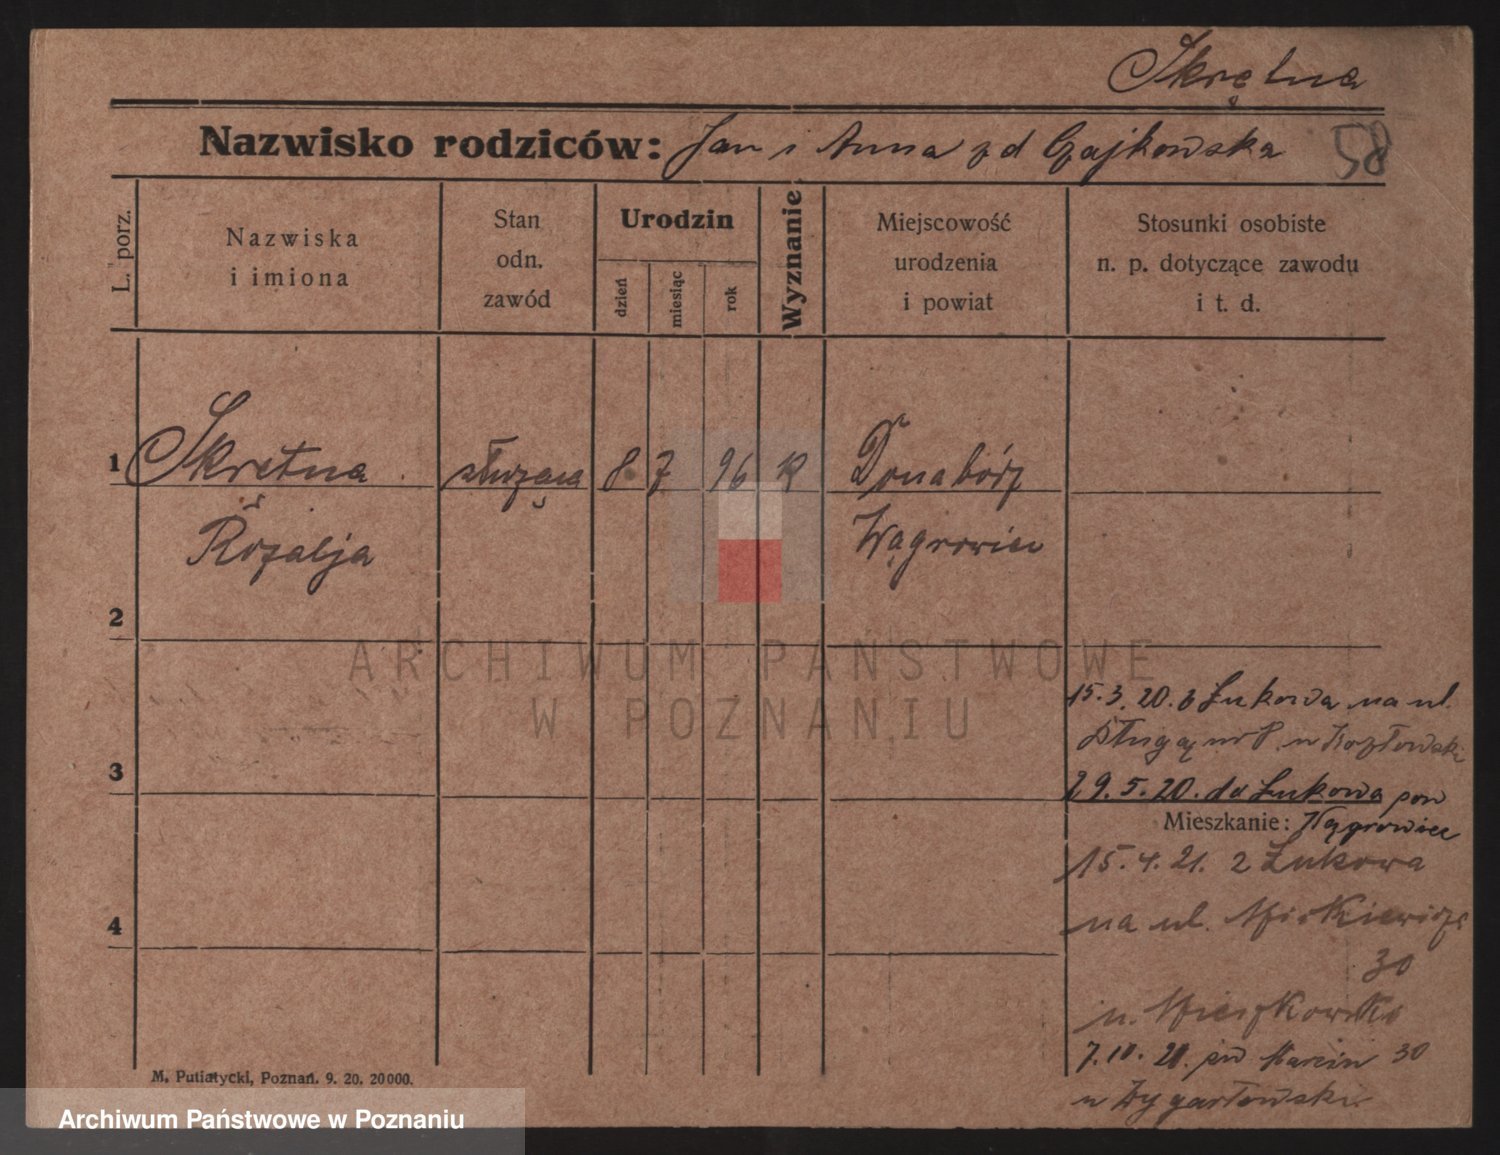 Skrętna
Nazwisko rodziców: Jan i Anna z d Gajkowska 58
L. porz.
Nazwiska
i imiona
Stan
odn.
zawód
Urodzin
dzień
miesiąc
rok
Wyznanie
Miejscowość
urodzenia
i powiat
Stosunki osobiste
n. p. dotyczące zawodu
i t. d.
1 Skretna służąca 8 7 96 k Donabórz
Rozalja Wągrowiec
2
ARCHIWUM PAŃSTWOWE
W POZNANIU
15.3.20. z Łukowa na ul.
Długą nr 8 u Kozłowski
3
29.5.20. do Łukowa pow
Mieszkanie: Wągrowiec
15.4.21. z Łukowa
4
na ul. 
30
u. Mieszkowska
7.10.21. Marcin 30
u
M. Putiatycki, Poznań. 9. 20. 20000.
Archiwum Państwowe w Poznaniu